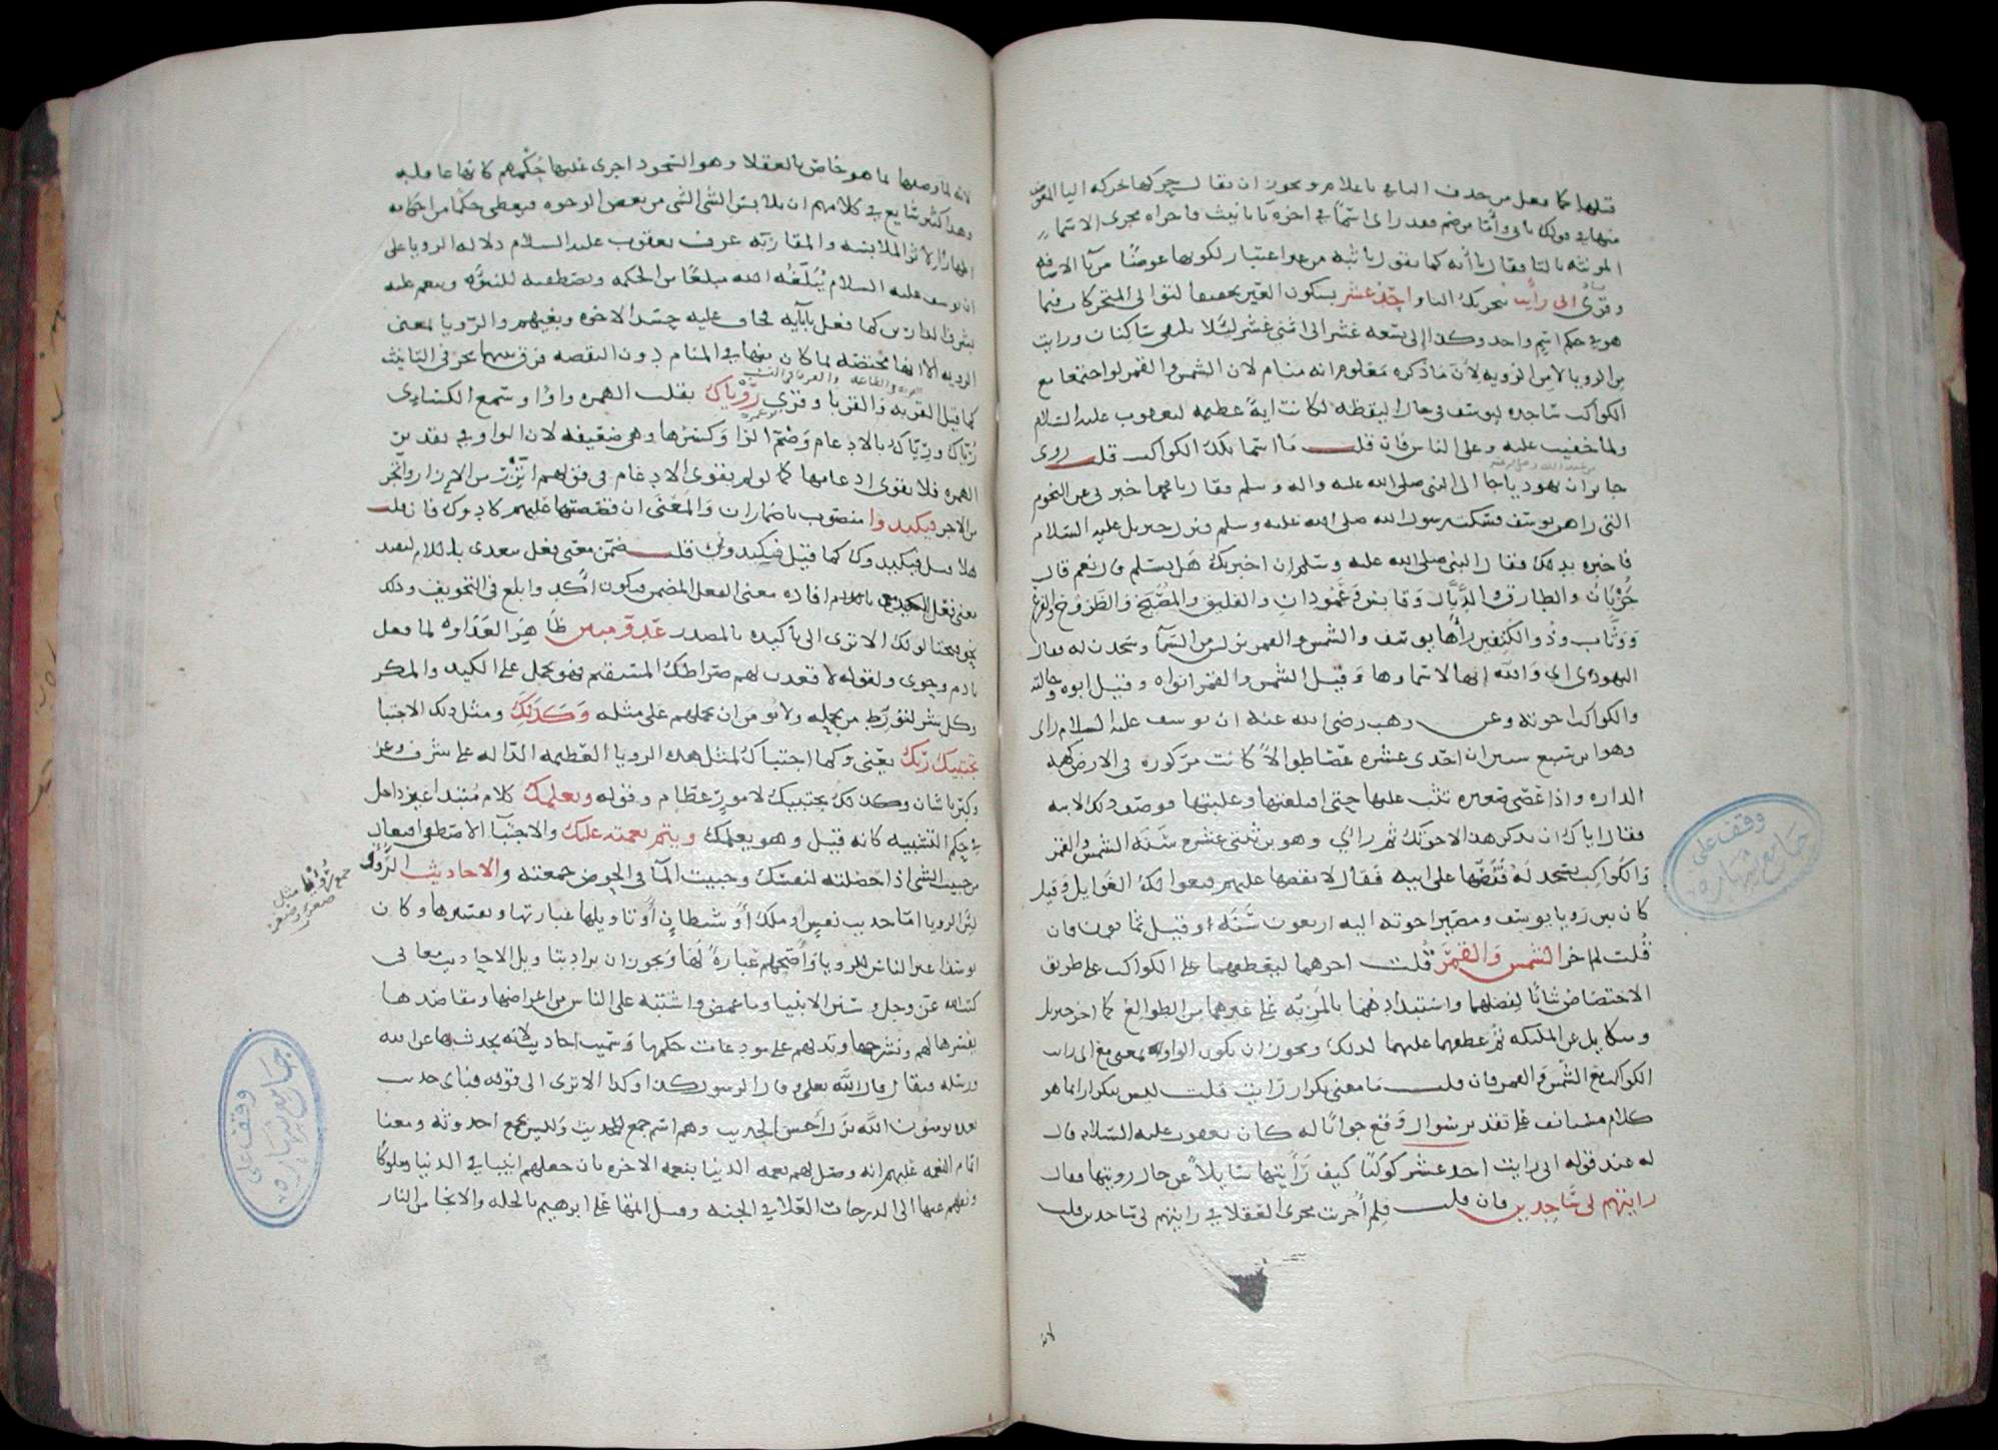 قبلها كما فعل من حذف الياء في يا غلام ويجوز ان يقال حركها حركة اليا المعوض
منها في قولك يا ابي واما من ضم فقد راى اسما في اخره تا تانيث فاجراه مجرى الاسما
المونثه بالتا فقال يا أبه كما يقول يا ثبه من غير اعتبار لكونها عوضًا من يآ الاضافه
وقرئ انى رايت بتحريك اليا و احد عشر بسكون العين تخفيفا لتوالى المتحركات فيما
هو فى حكم اسم واحد وكذا الى تسعه عشر الا اثنى عشر لئلا يلتقى ساكنان ورايت
من الرويا لا من الرويه لأن ما ذكره معلوم انه منام لان الشمس والقمر لو اجتمعا مع
الكواكب ساجده ليوسف فى حال اليقظه لكانت ايةً عظيمه ليعقوب عليه السلام
ولما خفيت عليه وعلى الناس فان قلت ما اسما تلك الكواكب قلت روى
جابر ان يهوديا جا الى النبى صلى الله عليه واله وسلم فقال يا محمد اخبرنى عن النجوم
التى راهن يوسف فسكت رسول الله صلى الله عليه وسلم فنزل جبريل عليه السلام
فاخبره بذلك فقال النبى صلى الله عليه وسلم ان اخبرتك هل تسلم قال نعم قال
جُرْبانُ والطارق والذَّيَّال وقابس وعَمُودانِ والفليق والمُصْبح والضروح والفرغ
ووثَّاب وذُو الكتفين رأها يوسف والشمس والقمر نزلن من السمآ وسجدن له فقال
اليهودى اى والله إنها لاسماوها وقيل الشمس والقمر ابواه وقيل ابوه وخالته
والكواكب اخوته وعن وهب رضى الله عنه ان يوسف عليه السلام راى
وهو ابن سبع سنين ان احدى عشره عصًا طوالاً كانت مركوزه فى الارض كهيه
الداره واذا عصى صغيره تثب عليها حتى اقتلعتها وغلبتها فوصف ذلك لابيه
فقال اياك ان تذكر هذا لاخوتك ثم راى وهو بن ثنتى عشره سَنَه الشمس والقمر
والكواكب تسجد له فقصّها على ابيه فقال لا تقصها عليهم فيبغوا لك الغوايل وقيل
كان بين رويا يوسف ومصير اخوته اليه اربعون سَنَه او قيل ثمانون فان
قُلت لم اخر الشمس والقمر قُلت اخرهما ليعطفهما على الكواكب على طريق
الاختصاص بيانًا لفضلهما واستبدادِهما بالمَزِيّه على غيرهما من الطوالع كما اخر جبريل
وميكايل عن الملايكه ثم عطفهما عليهما لذلك ويجوز ان يكون الواو بمعنى مع اى رايت
الكواكب مع الشمس والقمر فان قلت ما معنى تكرار رايت قلت ليس بتكرار انما هو
كلام مستانف على تقدير سوال وقع جوابًا له كان يعقوب عليه السلام قال
له عند قوله انى رايت احد عشر كوكبًا كيف رَأَيتها سايلاً عن حال رويتها فقال
رايتهم لى ساجدين فان قلت فلم أُجريت مجرى العقلا فى رايتهم لى ساجدين قلت
لانه
لانه لما وصفها بما هو خاص بالعقلا وهو السجود اجرى عليها حُكْمهم كانها عاقله
وهذا كثير شايع فى كلامهم ان يلابس الشى الشى من بعض الوجوه فيعطى حكمًا من احكامه
اظهارًا لاثر الملابسه والمقاربه عرف يعقوب عليه السلام دلاله الرويا على
ان يوسف عليه السلام يُبَلّغُه الله مبلغًا من الحكمه ويصطفيه للنبوّه وينعم عليه
بشرف الدارين كما فعل بآبآيه فخاف عليه حسد الاخوه وبغيهم والرويا بمعنى
الرويه الا انها مختصه بما كان منها فى المنام دون اليقظه فرق بينهما بحرفى التانيث
كما قيل القربه والقربا وقرئ روياك بقلب الهمزه واوًا وسمع الكساى
رُيّاك ورِيّاك بالادغام وضم الرا وكسرها وهى ضعيفه لان الواو فى تقدير
الهمزه فلا يقوى ادغامها كما لم يقوى الادغام فى قولهم اتّزر من الازار واتّجر
من الاجر فيكيدوا منصوب باضمار ان والمَعْنَى ان قصصتها عليهم كادوك فان قلت
هلا قيل فيكيدوك كما قيل فكيدونى قلت ضمّن معنى فعل يتعدى باللام ليفيد
معنى فعل الكيد مع افاده معنى الفعل المضمن فيكون أكد وابلغ فى التخويف وذلك
نحو فيحتالوا لك الا ترى الى تأكيده بالمصدر عدوّ مبين ظاهِر العَدَاوه لما فعل
بادم وحوى ولقوله لاقعدن لهم صراطك المستقيم فهو يحمل على الكيد والمكر
وكل شر ليورّط من يحمله ولا يومن ان يحملهم على مثله وَكَذَلِكَ ومثل ذلك الاجتبا
يجتبيك رَبّك يعنى وكما اجتباك لمثل هذه الرويا العظيمه الدّاله على شرف وعز
وكبريا شان وكذلك يجتبيك لامورٍ عظام وقوله ويعلمك كلام مبتدا غير داخل
فى حكم التشبيه كانه قيل وهو يعلمك ويتم نعمته عليك والاجتبآ الاصطفا افتعال
من جبيت الشى اذا حصلته لنفسك وجبيت المآ فى الحوض جمعته والاحاديث الرُّؤَا
جمع رؤيا مثل صغرى وصغر
لان الرويا امّا حديث نفسٍ او ملك أو شيطانٍ وتاويلها عبارتها وتفسيرها وكان
يوسف اعبر الناس للرويا وأصحهم عبارةً لها ويجوز ان يراد بتاويل الاحاديث معانى
كتب الله عز وجل وسنن الانبيا وما غمض واشتبه على الناس من اغراضها ومقاصدها
يفسرها لهم ويشرحها ويدلهم على مودعات حكمها وسميت احاديث لانه يحدث بها عن الله
ورسله فيقال قال الله تعلى وقال الرسول كذا وكذا الا ترى الى قوله فباى حديث
بعده يومنون الله نزل أحسن الحديث وهو اسم جمع للحديث وليس بجمع احدوثه ومعنا
اتمام النعمه عليهم انه وصل لهم نعمه الدنيا بنعمه الاخره بان جعلهم انبيا فى الدنيا وملوكًا
ونقلهم عنها الى الدرجات العُلا فى الجنه وقيل اتمها على ابرهيم بالخله والانجا من النار
وقف على
جامع شهاره
وقف على
جامع شهاره